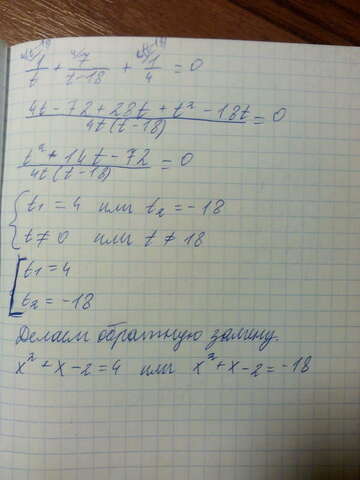 1/t + 7/(t-18) + 1/4 = 0
(4t - 72 + 28t + t² - 18t)/(4t(t-18)) = 0
(t² + 14t - 72)/(4t(t-18)) = 0
{ t₁ = 4 или t₂ = -18
t ≠ 0 или t ≠ 18
[ t₁ = 4
t₂ = -18
Делаем обратную замену.
x² + x - 2 = 4 или x² + x - 2 = -18